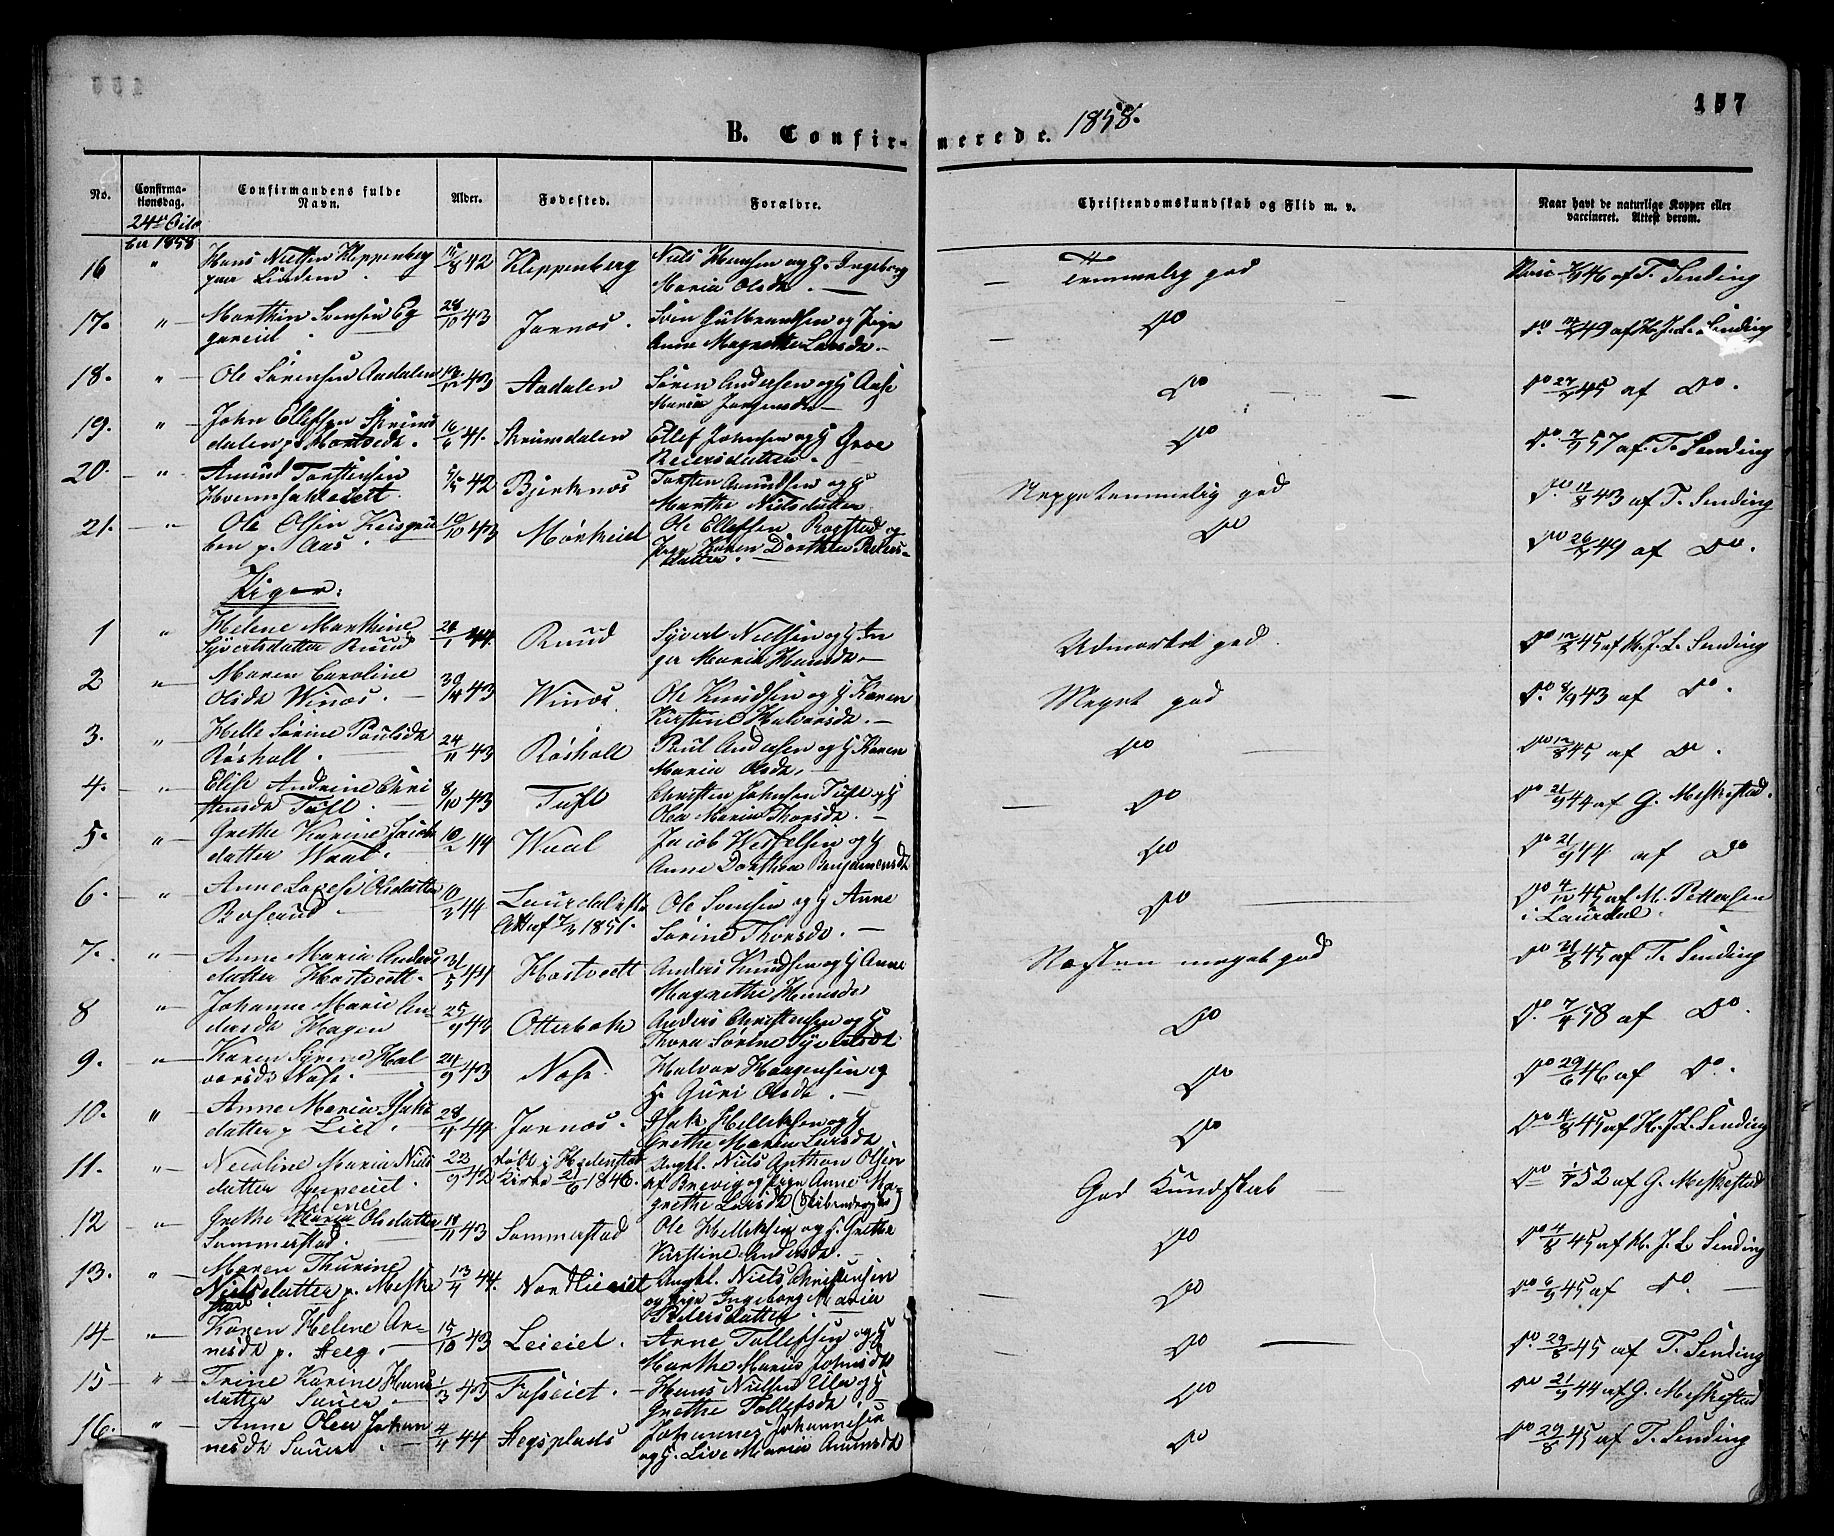 157
B. Confirmerede. 1858.
No.
Confirmationsdag.
Confirmandens fulde Navn.
Alder.
Fødested.
Forældre.
Christendomskundskab og Flid m. v.
Naar havt de naturlige Kopper eller vaccineret. Attest derom.
24de Octo
ber 1858
16 " Hans Nielsen Kleppenberg 15/8 42 Kleppenberg Niels Hansen og H. Ingeborg
Maria Olsdt. — Temmelig god af T. Sending
17. " Marthin Svensen Eg
gereid 28/10 43 Jarnæs. Sven Gulbrandsen og Pige
Anne Magrethe Larsdt. — Do Do 49 af H. J. L. Sending
18. " Ole Sørensen Aadalen 43 Aadalen Søren Andersen og H Aase
Maria Jørgensdt. — Do Do 45 af Do.
19. " John Ellefsen Skrims
dalen p. Hostvedt. 16/6 41. Skrimsdalen Ellef Johnsen og H Groe
Reiersdatter. Do Do. 57 af T. Sending
20. " Amund Torstensen 42 Bjerknæs Torsten Amundsen og H
Marthe Nielsdatter Neppe temmelig god Do 43 af T. Sending
21. " Ole Olsen
p. Aas. 19/10 43 Mørkeied Ole Ellefsen Rogstad og
Pige Karen Dorthea Peders-
datter. Do Do 26 49 af Do.
Piger.
1 " Helene Marthine
Syvertsdatter Ruud 44. Ruud Syvert Nielsen og H In
ger Maria Hansdt. — Udmærket god. Do 45 af H. J. L. Sending
2 " Maren Caroline
Olsdt. Winæs. 43 Winæs. Ole Knudsen og H Karen
Kirstine Halvorsdt. — Meget god Do. 8/9 43 af Do.
3. " Helle Sørine Paulsdt.
Røsholt. 24/11 43 Røsholt Paul Andersen og H Karen
Maria Olsdt. — Do Do 45 af Do.
4. " Elise Andrine Chri
stensdt. Tuft. 8/10 43 Tuft Christen Johnsen Tuft og H
Olea Maria Thorsdt. — Do Do 21/9 44 af G. Meskestad.
5. " Grethe Karine Jacobs
datter Waal. 10/2 44 Waal Jacob Wetlesen og H
Anne Dorthea Benjaminsdt. Do Do 21/9 44 af Do
6. " Anne Lovise Olsdatter
Boserud. 10/3 44 Laurdal
Att af 1851. Ole Svensen og H Anne
Sørine Thorsdt. — Do Do 4/12 45 af M. Pettersen
i Laurdal.
7. " Anne Maria Anders
datter Hostvedt. 31/5 44 Hostvedt Anders Knudsen og H Anne
Magrethe Hansdt. Næsten meget god Do 31/8 45 af T. Sending
8 " Johanne Marie An-
dersdt. Hagen 25/9 44 Otterbæk Anders Christensen og H
Thora Sørine Syvertsdt. Do Do. 7/4 58 af Do.
9. " Karen Syrene Hal
vorsdt. Næse. 24/9 43 Næse. Halvor Haagensen og
H. Guri Olsdt. — Do Do 29/6 46 af Do.
10. " Anne Maria Isaks
datter p. Lied. 44. Jarnæs. Isak Helleksen og H
Grethe Maren Larsdt. Do Do 4/8 45 af H. J. L. Sending
11. " Nicoline Maria Niels
datter 22/9 42 døbt i Hedenstad
Kirke 2/6 1846. Ungkl. Niels Anthon Olsen
af Brevig og Pige Anne Ma-
grethe Larsdt. God Kundskab Do 52 af G. Meskestad
12 " Grethe Helene
Maria Olsdatter
Sommerstad. 18/11 43 Sommerstad Ole Helleksen og H. Grethe
Kirstine Andersdt. — Do Do 4/8 45 af H. J. L. Sending
13. " Maren Thurine
Nielsdatter p. Meske
stad 13/4 44. Nordlieeiet Ungkl. Niels Christensen
og Pige Ingeborg Maria
Pedersdatter. Do Do 45 af Do.
14 " Karen Helene Ar-
nesdt. p. Steeg. 15/10 43 Leieiet. Arne Tollefsen og H
Marthe Maria Johnsdt. Do Do. 29/8 45 af T. Sending
15 " Trine Karine Hans
datter Sauer. 1/3 43 Fosseiet. Hans Nielsen og H
Grethe Tollefsdt. Do Do 21/9 44 af G. Meskestad
16. " Anne Olea Johan
nesdt. Sauer. 4/4 44 Stegsplads Johannes Johannesen
og H. Live Maria Amunsdt. Do Do 29/8 45 af T. Sending